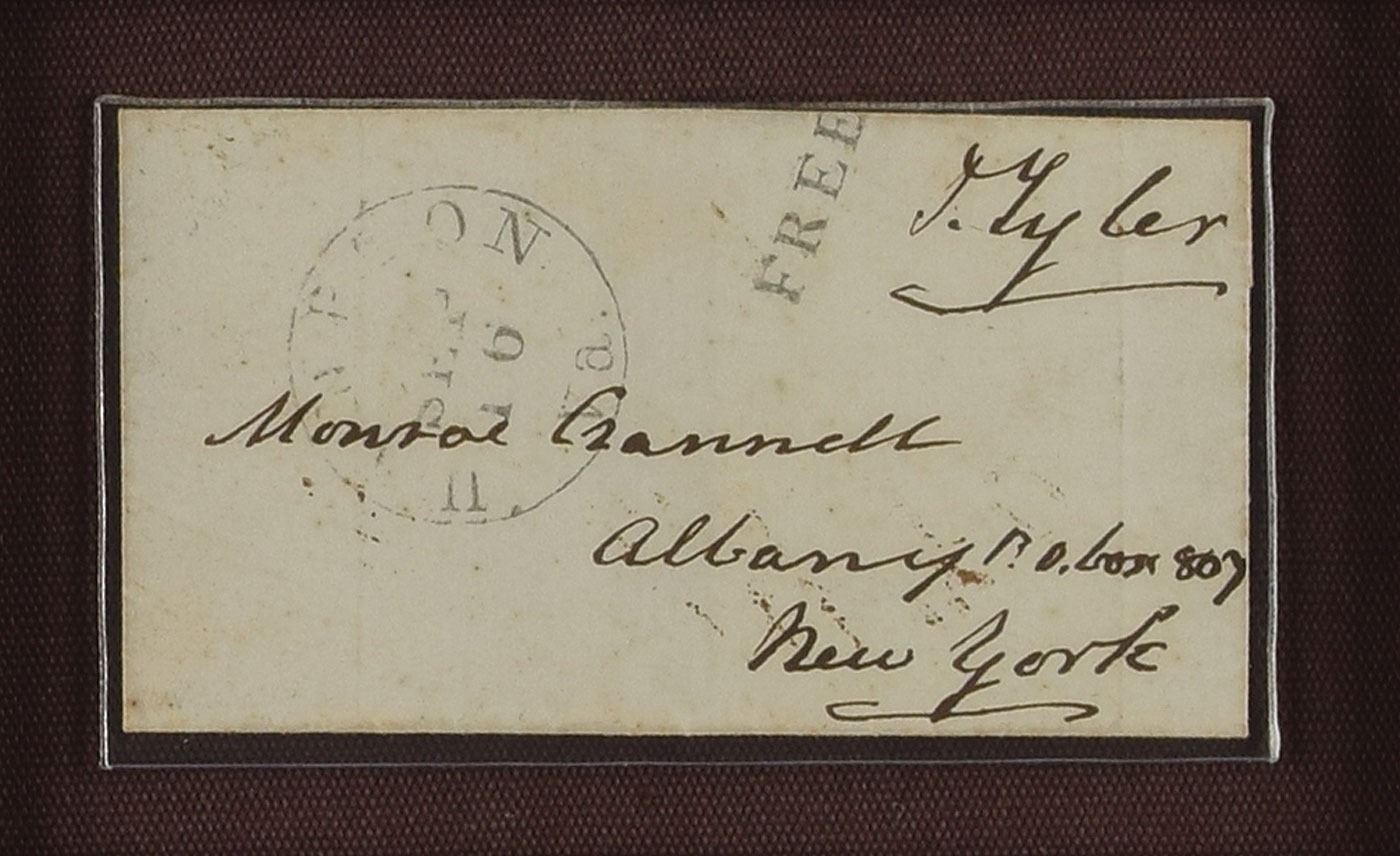 FREE
J. Tyler
SEP
16
Va.
Monroe Crannell
Albany P.O. box 807
New York